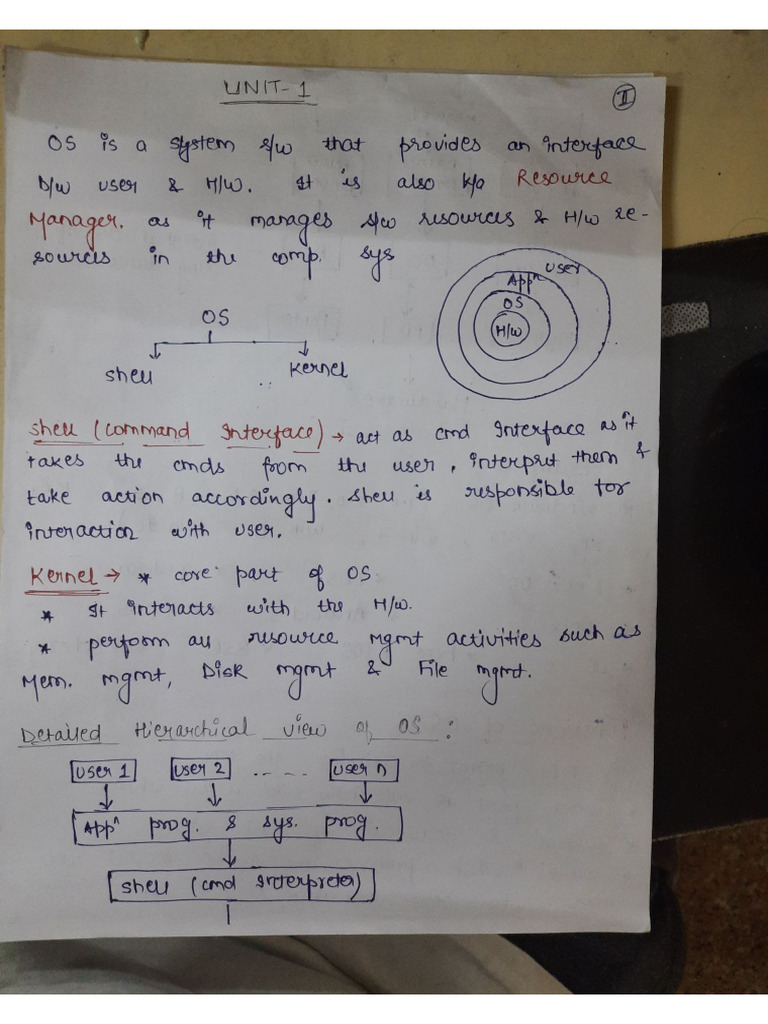 UNIT-1
II
OS is a system s/w that provides an interface
b/w user & H/w. It is also k/a Resource
Manager. as it manages s/w resources & H/w re-
sources in the comp. sys
User
Appⁿ
OS
H/w
OS
Shell
Kernel
Shell (Command Interface) → act as cmd Interface as it
takes the cmds from the user, interpret them &
take action accordingly. Shell is responsible for
interaction with user.
Kernel → * core part of OS.
* It interacts with the H/w.
* perform all resource mgmt activities such as
Mem. mgmt, Disk mgmt & File mgmt.
Detailed Hierarchical view of OS :
User 1 User 2 ..... User n
Appⁿ prog. & sys. prog.
Shell (cmd Interpreter)